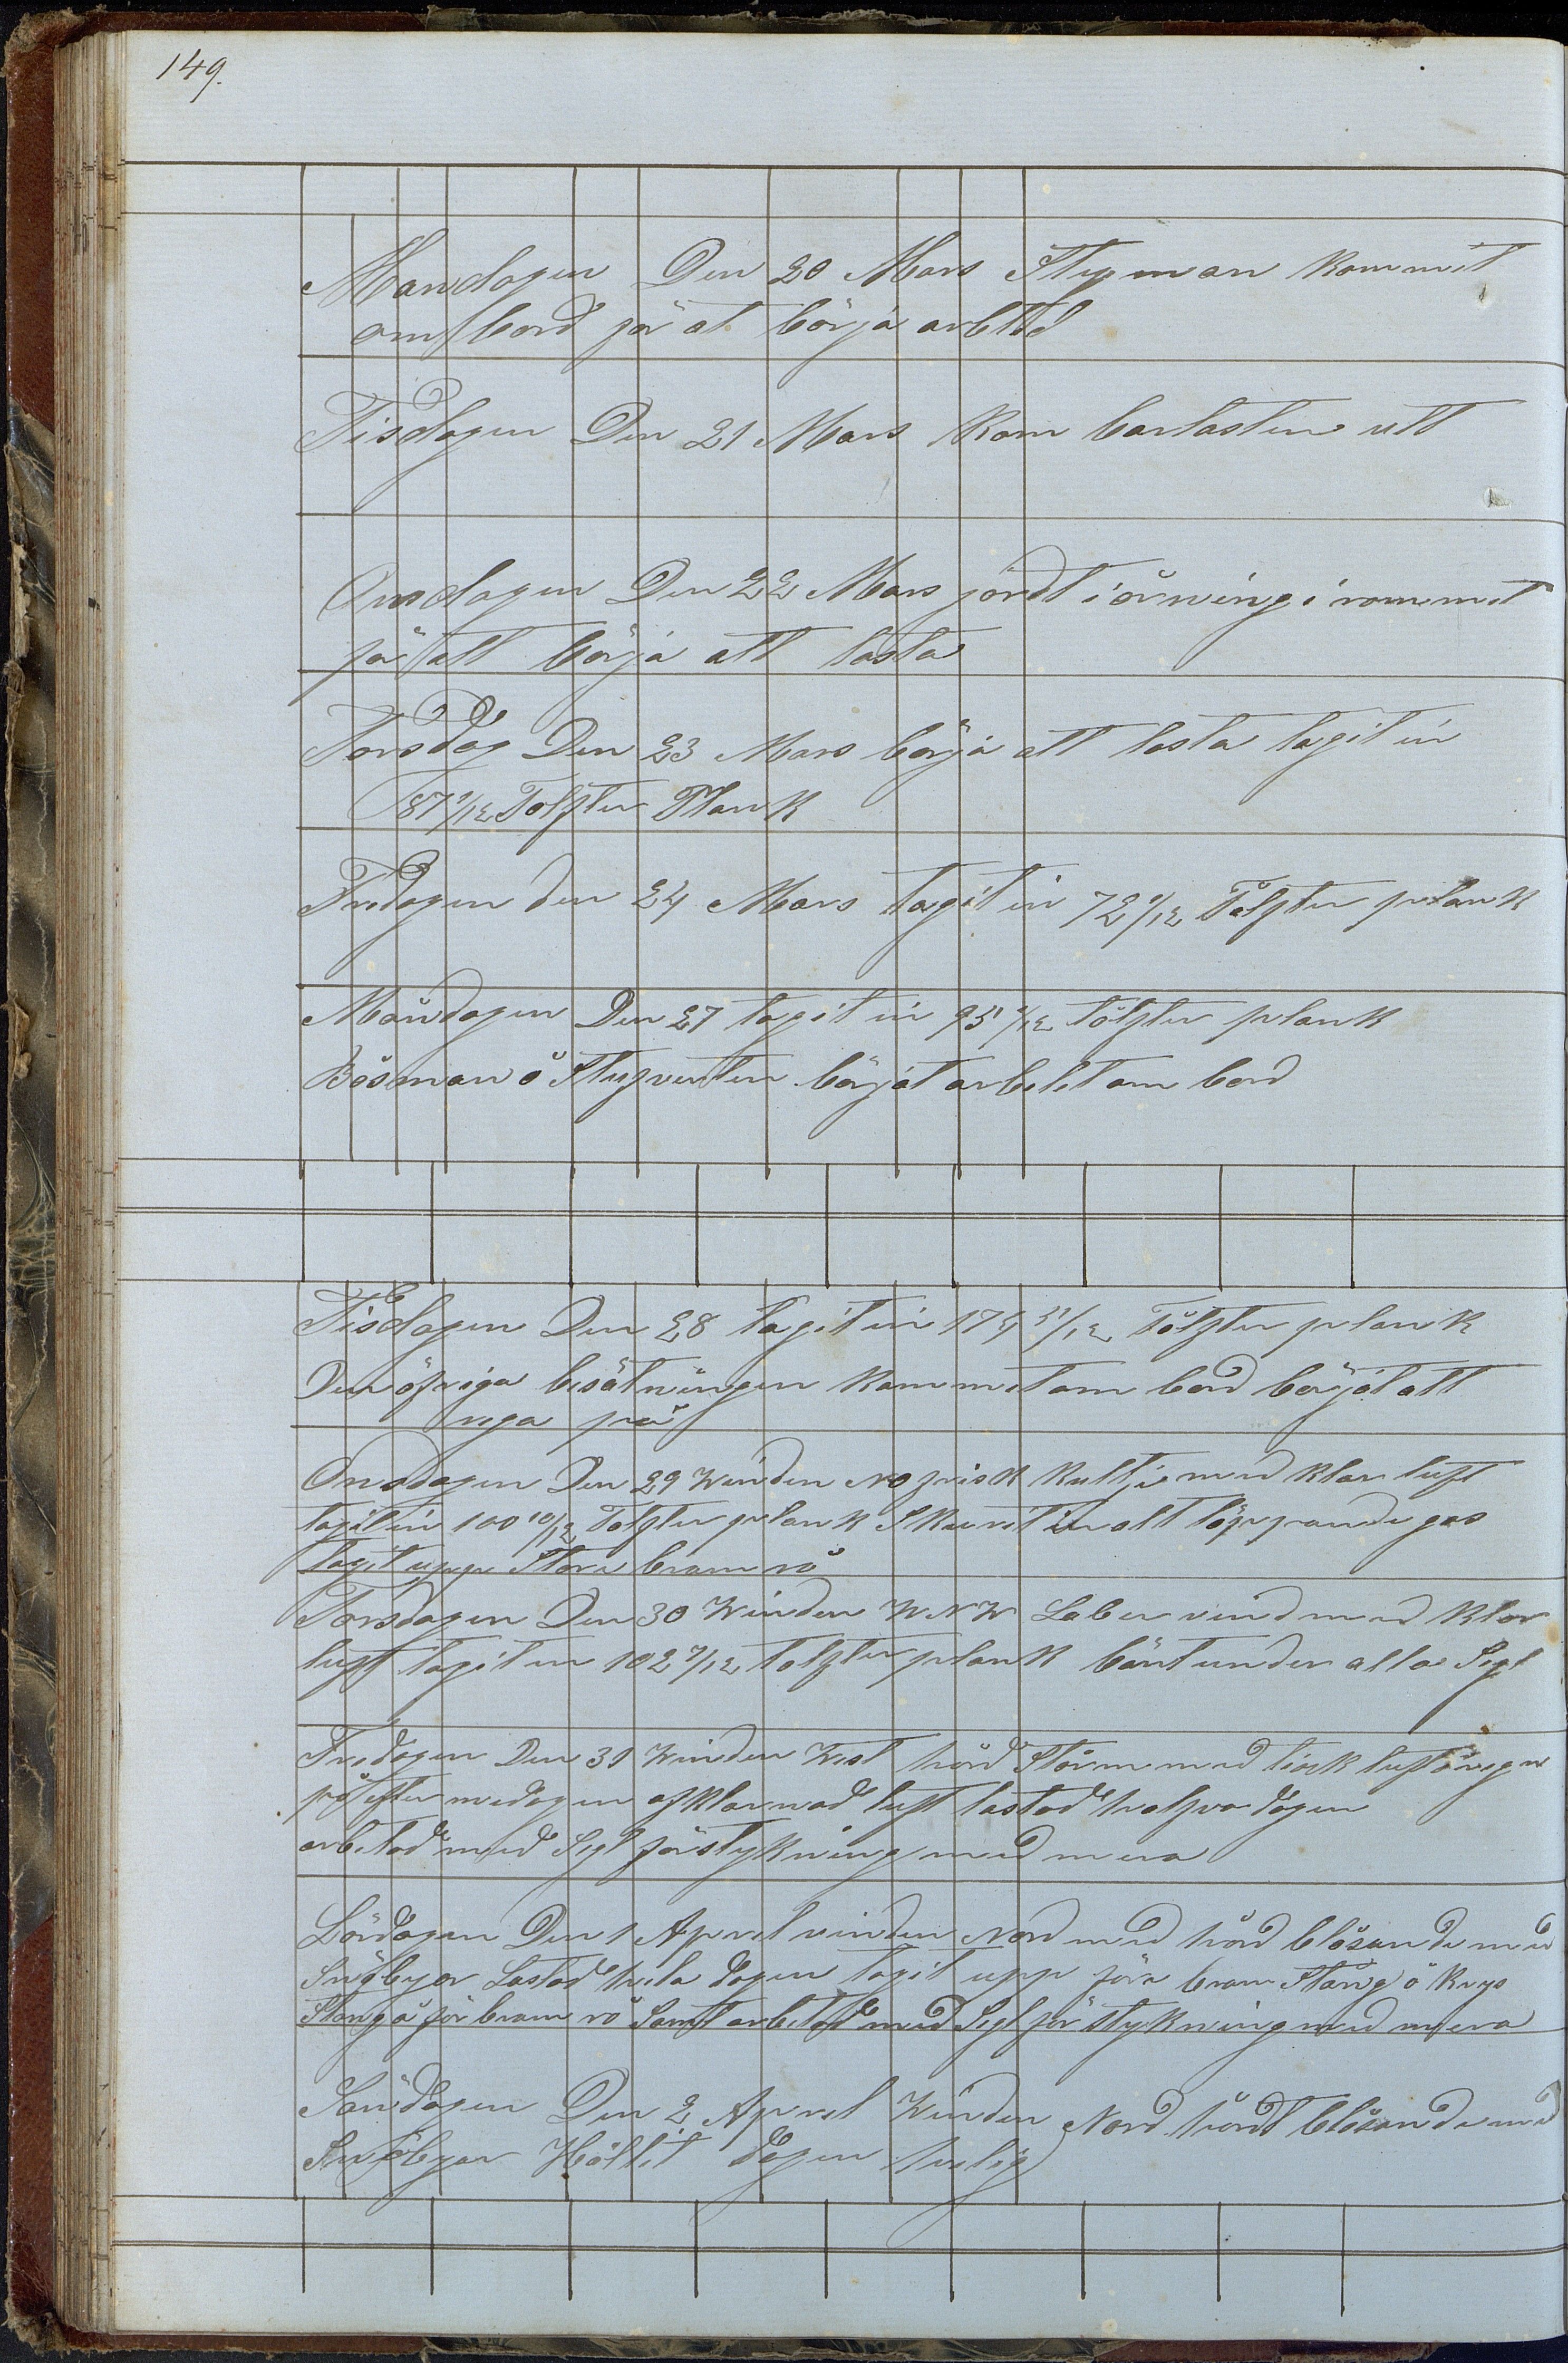 149.
Mandagen Den 20 Mars Styrman kommit
om bord för at börja arbeted
Tisdagen Den 21 Mars kom barlasten utt
Onsdagen Den 22 Mars jordt i årning i rommet
för att börja att lasta
Torsdag Den 23 Mars börja att lasta tagit in
87 /12 Tolfter Plank
Fredagen den 24 Mars tagit in 72 /12 Tolfter plank
Måndagen Den 27 tagit in 95 /12 tölfter plank
Bosman ö Stuverten börjat arbetet om bord
Tisdagen Den 28 tagit in 174 11/12 Tölfter plank
Den öfriga besätningen kommit om bord börjat att
rega på
Onsdagen Den 29 Winden NO frisk kultje med klar luft
tagit in 100 10/12 Tolfter plank Skurit in alt löppande gos
tagit upp Stora bram rå
Torsdagen Den 30 Winden WNW Laber vind med klar
luft tagit in 102 7/12 tolfter plank bänt under alla Segl
Fredagen Den 31 Winden West hård Storm med tiok luft å regn
på efter medagen afklarnad luft lastad halfva dagen
arbetad med Segl förstykning med mera
Lördagen Den 1 Aprel vinden Nord med hård blåsande med
Snöbyar Lastad hela dagen tagit upp före bram Stång ö krys
Stang å för bram rå Samt arbetad med Segl för stykning med mera
Sandagen Den 2 Aprel Winden Nord hårdt blåsande med
Snöbyar Hållit dagen helig